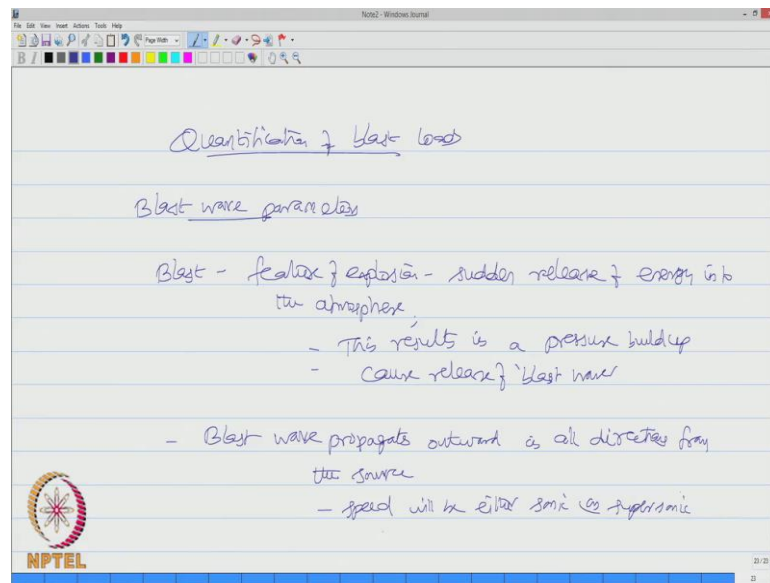 Note2 - Windows Journal
File Edit View Insert Actions Tools Help
Page Width
B I
Quantification of blast loads
Blast wave parameters
Blast - feature of explosion - sudden release of energy into
the atmosphere
- This results in a pressure buildup
- Cause release of 'blast wave'
- Blast wave propagates outward in all directions from
the source
- speed will be either sonic or supersonic
NPTEL
23/23
23